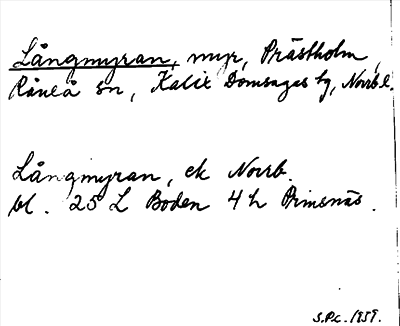 Långmyran, myr, Prästholm,
Råneå sn, Kalix Domsagas tg, Norrb. l.
Långmyran, ek Norrb.
bl. 25 L Boden 4 h Prinsnäs.
1959.